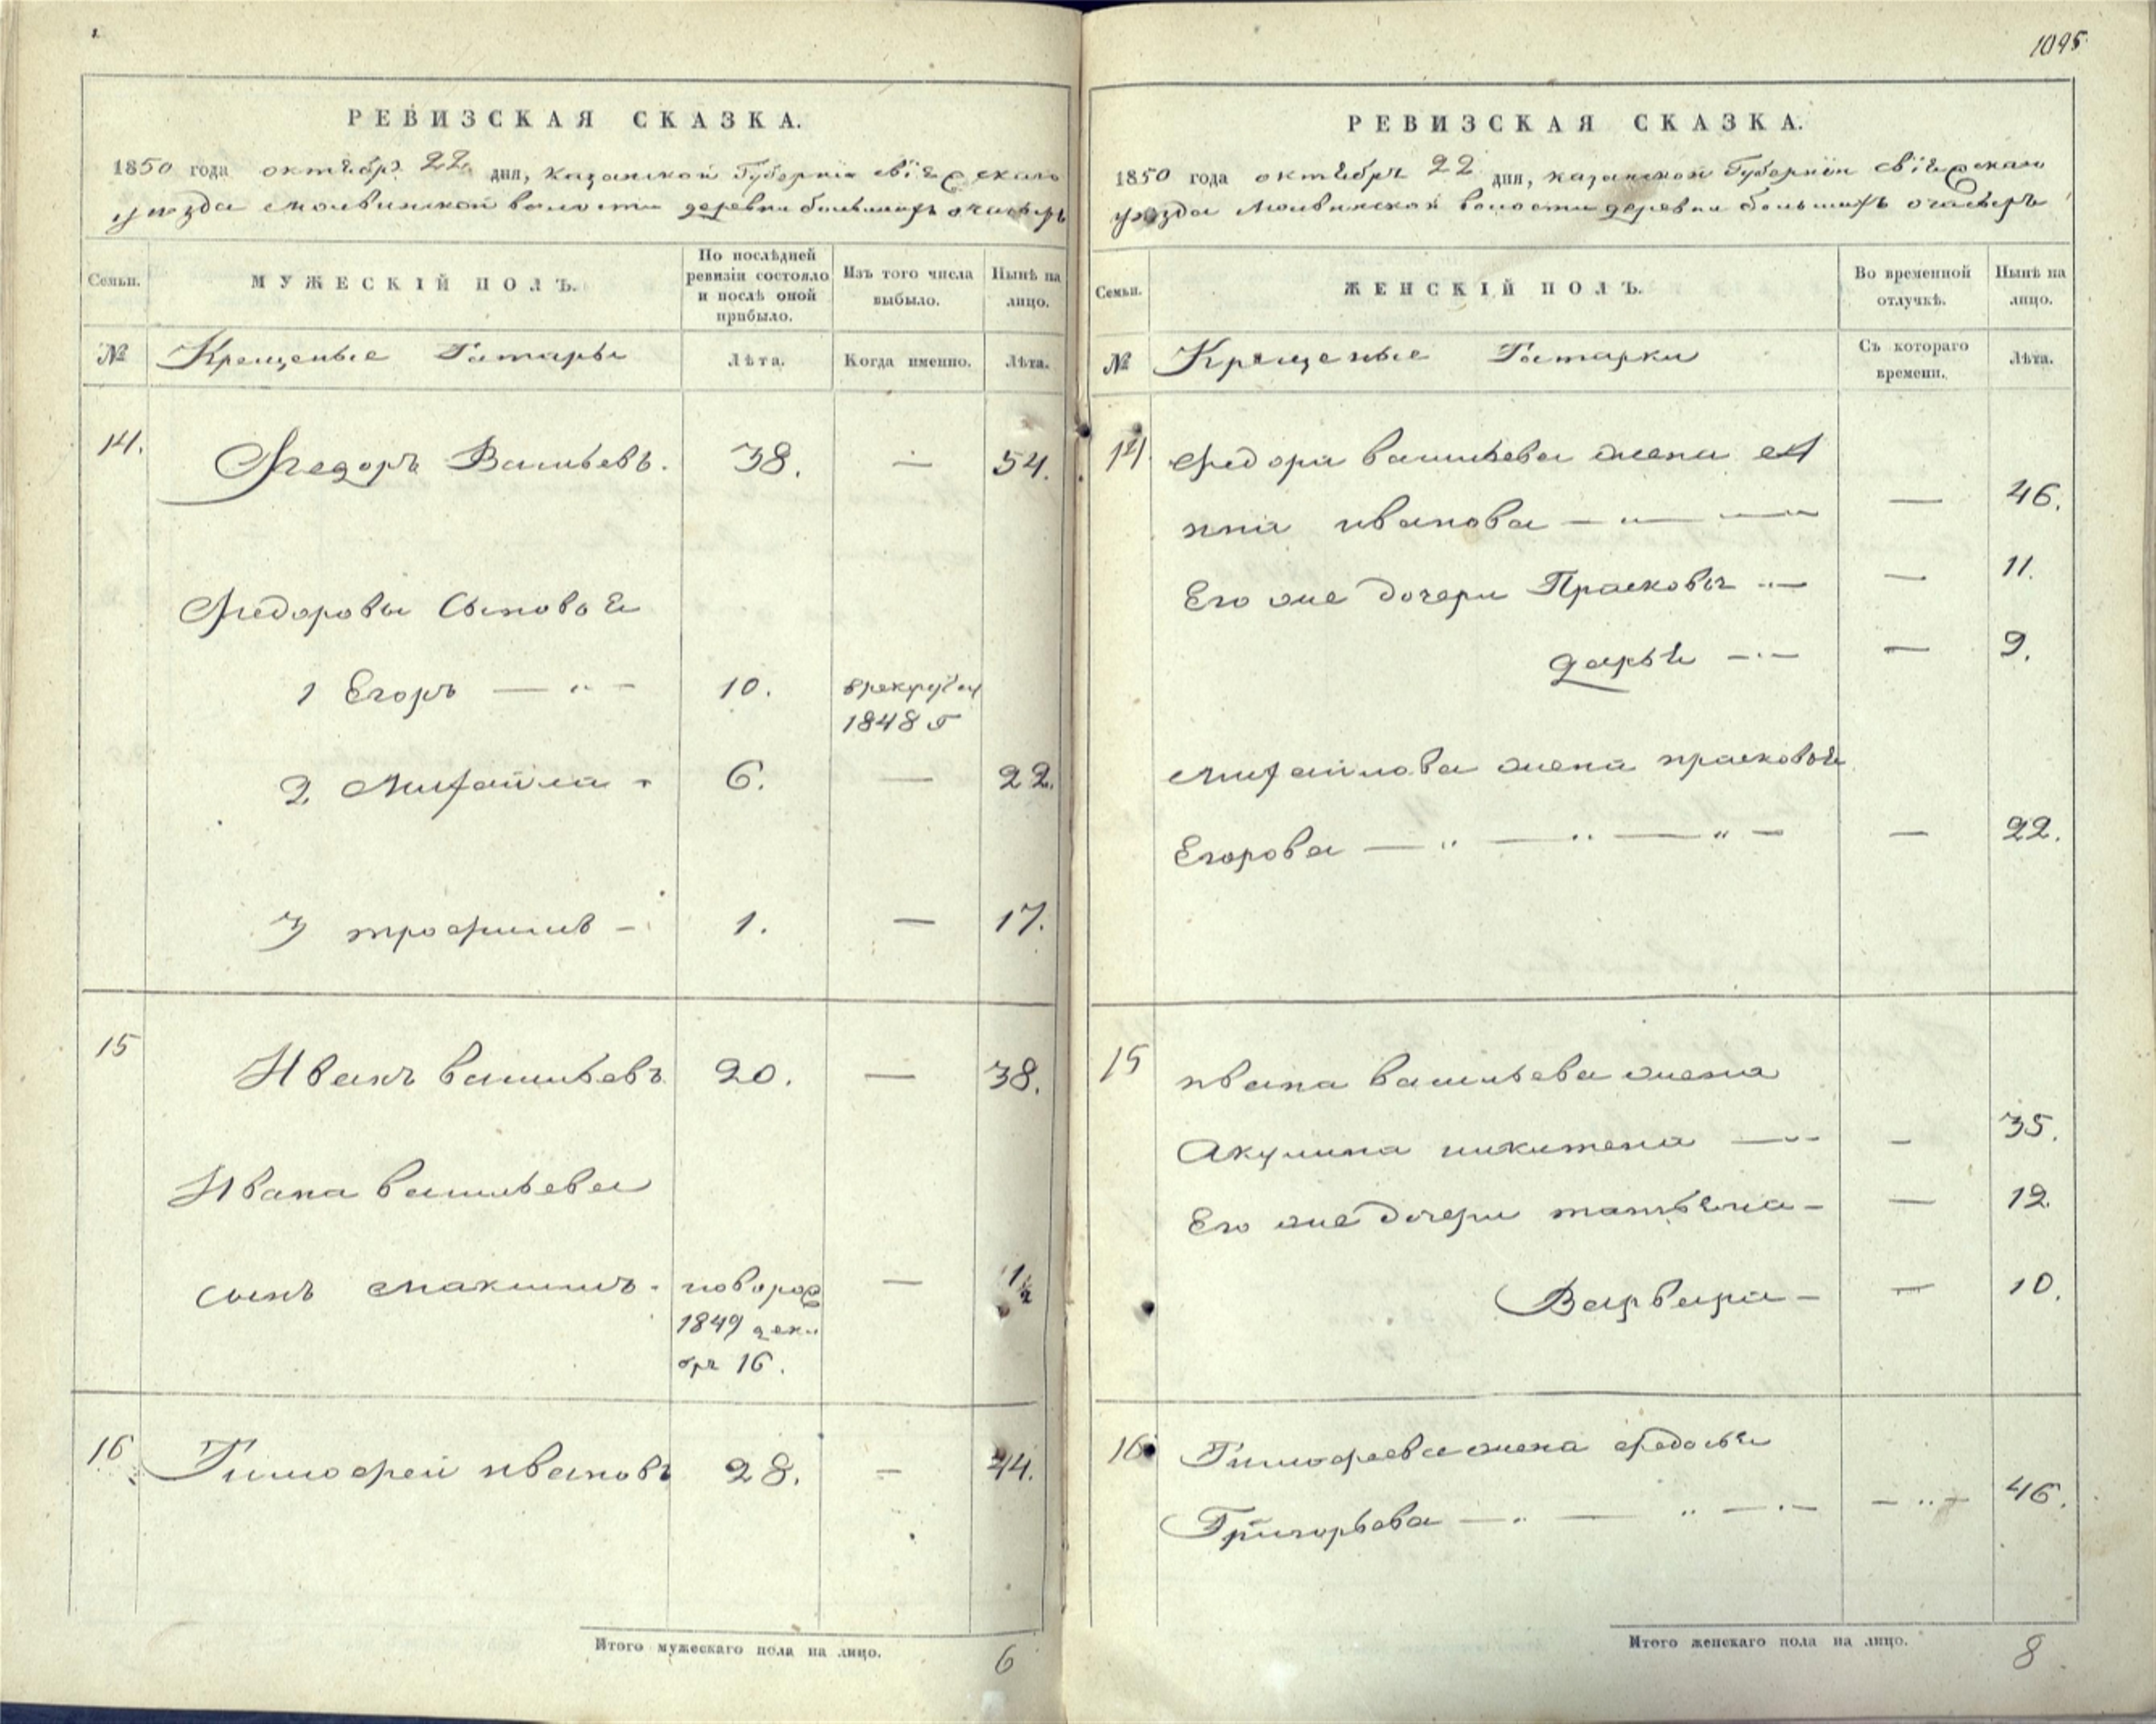 1095
РЕВИЗСКАЯ СКАЗКА.
1850 года октября 22 дня, казанской Губернiи свiяжскаго
уезда молвинской волости деревни большихъ очасыръ
Семьи.
МУЖЕСКІЙ ПОЛЪ.
По послѣдней
ревизіи состояло
и послѣ оной
прибыло.
Изъ того числа
выбыло.
Нынѣ на
лицо.
№
Крещеные Татары
Лѣта.
Когда именно.
Лѣта.
14. Федоръ Васильевъ. 38. — 54.
Федоровы Сыновья
1 Егоръ — " - 10. в рекруты
1848 г
2 Михайла " 6. — 22.
3 трофимъ - 1. — 17.
15 Иванъ васильевъ 20. — 38.
Ивана васильева
сынъ максимъ - новорож — 1½
1849 дека
бря 16.
16 Тимофей ивановъ 28. — 44.
Итого мужескаго пола на лицо. 6
РЕВИЗСКАЯ СКАЗКА.
1850 года октября 22 дня, казанской Губернiи свiяжскаго
уезда молвинской волости деревни большихъ очасыръ
Семьи.
ЖЕНСКІЙ ПОЛЪ.
Во временной
отлучкѣ.
Нынѣ на
лицо.
№
Крещеные Татарки
Съ котораго
времени.
Лѣта.
14 Федора васильева жена а
нна иванова — " — — 46.
Его же дочери Прасковья " — — 11.
дарья - " - — 9.
михайлова жена прасковья
Егорова — " — " — " — — 22.
15 ивана васильева жена
Акулина никитена — " - - 35.
Его же дочери татьяна - — 12
Варвара - — 10.
16 Тимофеева жена федосья
Григорьева — " — " — " — - " - 46.
Итого женскаго пола на лицо. 8